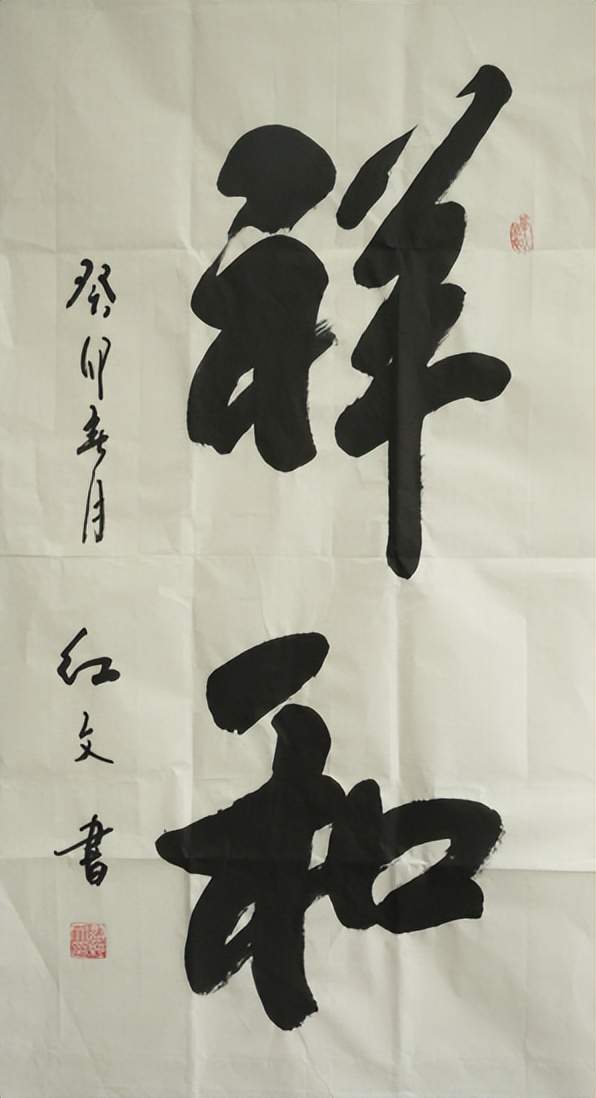 祥和
癸卯春月 红文书